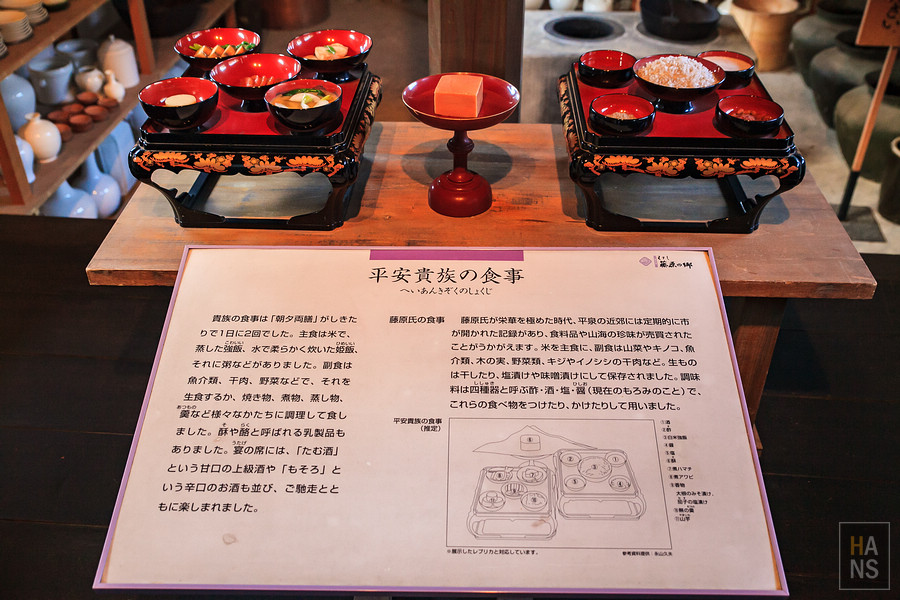 えさし
藤原の郷
平安貴族の食事
へいあんきぞくのしょくじ
貴族の食事は「朝夕両膳」がしきた
りで1日に2回でした。主食は米で、
蒸した強飯、水で柔らかく炊いた姫飯、
それに粥などがありました。副食は
魚介類、干肉、野菜などで、それを
生食するか、焼き物、煮物、蒸し物、
羹など様々なかたちに調理して食し
ました。酥や酪と呼ばれる乳製品も
ありました。宴の席には、「たむ酒」
という甘口の上級酒や「もそろ」と
いう辛口のお酒も並び、ご馳走とと
もに楽しまれました。
藤原氏の食事
藤原氏が栄華を極めた時代、平泉の近郊には定期的に市
が開かれた記録があり、食料品や山海の珍味が売買された
ことがうかがえます。米を主食に、副食は山菜やキノコ、魚
介類、木の実、野菜類、キジやイノシシの干肉など。生もの
は干したり、塩漬けや味噌漬けにして保存されました。調味
料は四種器と呼ぶ酢・酒・塩・醤(現在のもろみのこと)で、
これらの食べ物をつけたり、かけたりして用いました。
平安貴族の食事
(推定)
①酒
②酢
③白米強飯
④醤
⑤塩
⑥酥
⑦煮ハマチ
⑧煮アワビ
⑨香物
大根のみそ漬け、
茄子の塩漬け
⑪山芋
※展示したレプリカと対応しています。
参考資料提供:永山久夫
HA
NS